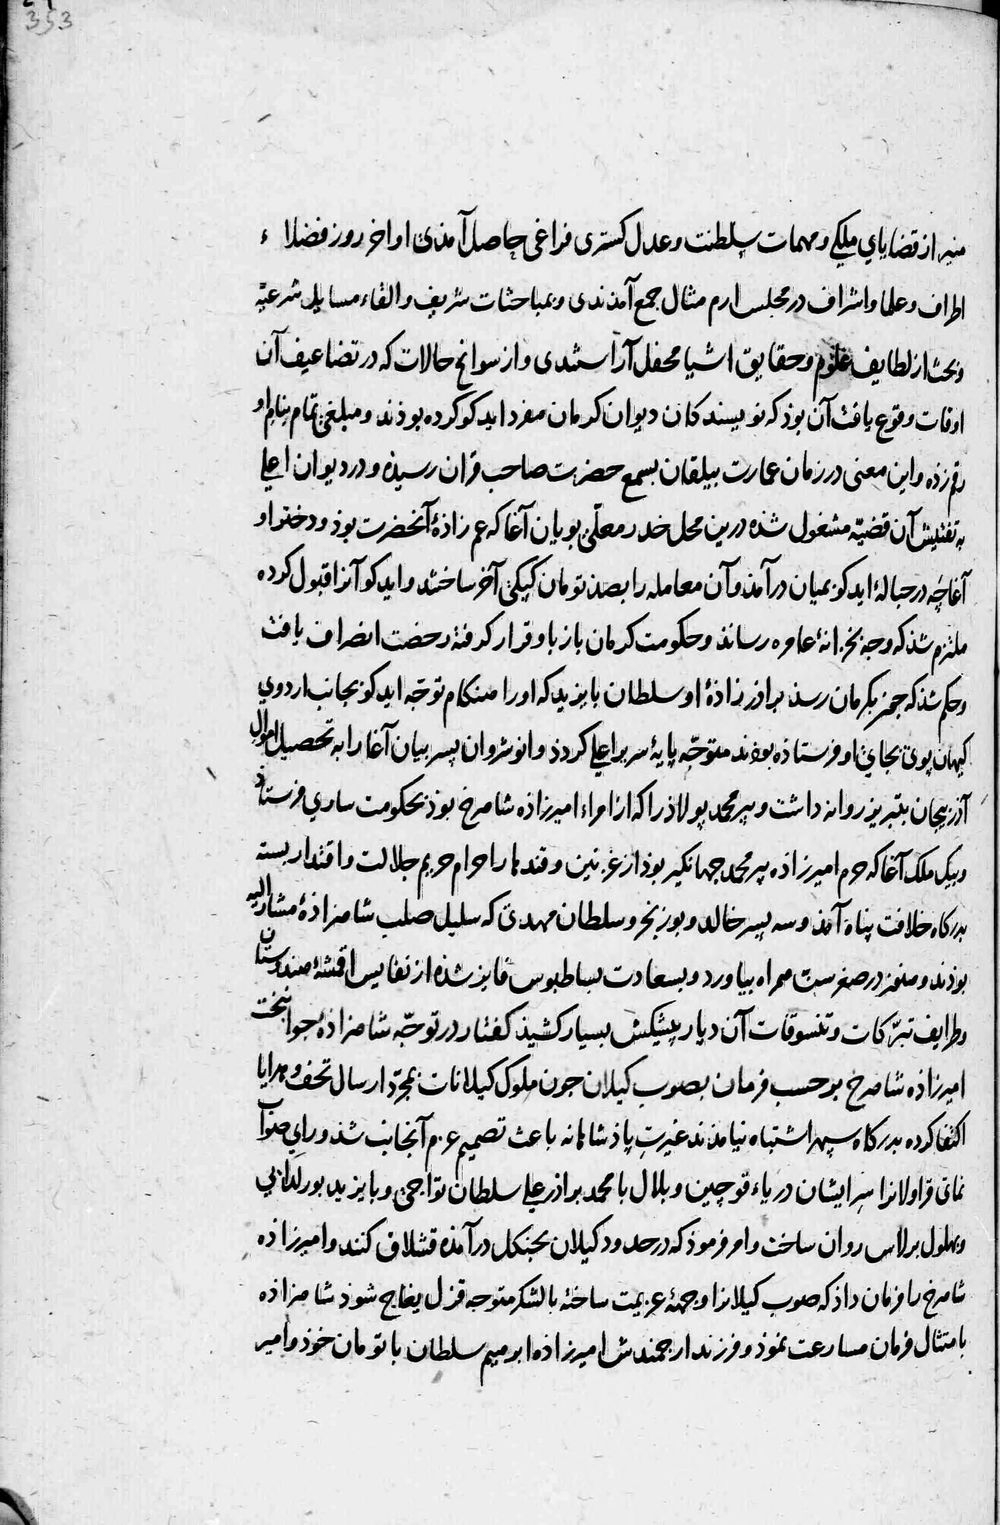 353
منیر از قضایای ملکی و مهمات سلطنت و عدل کستری فراغی حاصل آمدی اواخر روز فضلاء
اطراف و علما و اشراف در مجلس ارم مثال جمع آمدندی و بمباحثات شریف و القاء مسایل شرعیّه
و بحث از لطایف علوم و حقایق اشیا محفل آراستندی و از سوانح حالات که در تضاعیف آن
اوقات وقوع یافت آن بوذ که نویسندکان دیوان کرمان مفرد ایدکو کرده بوذند و مبلغی تمام بنام او
رقم زده و این معنی در زمان عمارت بیلقان بسمع حضرت صاحب قران رسیذه و در دیوان اعلی
به تفتیش آن قضیّه مشغول شذه درین محل خدر معلّی بویان آغا که عم زاذهٔ آنحضرت بوذ و دختر او
آغاچه در حبالهٔ ایدکو بمیان درآمذ و آن معامله را بصذ تومان کپکی آخر ساختند و ایدکو آنرا قبول کرده
ملتزم شذ که وجه بخزانهٔ عامره رسانذ و حکومت کرمان باز باو قرار کرفته رخصت انصراف یافت
و حکم شذ که جمز بکرمان رسذ براذرزاذهٔ او سلطان بایزید که او را هنکام توجّه ایدکو بجانب اردوی
کیهان پوی بجای او فرستاذه بوذند متوجّه پایهٔ سریر اعلی کردذ و انوشروان پسر بیان آغا را به تحصیل اموال
آذربیجان بتبریز روانه داشت و پیر محمد پولاذ را که از امراء امیرزاذه شاهرخ بوذ بحکومت ساری فرستاذ
و بیک ملک آغا که حرم امیرزاذه پیر محمد جهانکیر بوذ از غزنین و قندهار احرام حریم جلالت و اقتدار بسته
بدرکاه خلافت پناه آمذ و سه پسر خالد و بوزنجر و سلطان مهدی که سلیل صلب شاهزاذهٔ مشارالیه
بوذند و هنوز در صغر سن همراه بیاورد و بسعادت بساط بوس فایز شذه از نفایس اقمشهٔ هندوستان
و طرایف تبرّکات و تنسوقات آن دیار پیشکش بسیار کشیذ کفتار در توجّه شاهزاذهٔ جوانبخت
امیرزاذه شاهرخ برحسب فرمان بصوب کیلان جون ملوک کیلانات بمجرّد ارسال تحف و هدایا
اکتفا کرده بدرکاه سپهر اشتباه نیامذند غیرت پاذشاهانه باعث تصمیم عزم آنجانب شذ و رای صواب
نمای قراولانرا سرایشان دریاء قوچین و بلال با محمد براذر علی سلطان تواجی و بایزید بورلدای
و بهلول برلاس روان ساخت و امر فرموذ که در حدود کیلان بجنکل درآمذه قشلاق کنند و امیرزاذه
شاهرخ را فرمان داذ که صوب کیلانرا وجههٔ عزیمت ساخته بالشکر متوجه قزل یغاج شوذ شاهزاذه
بامتثال فرمان مسارعت نموذ و فرزند ارجمندش امیرزاذه ابرهیم سلطان با تومان خوذ و امیر